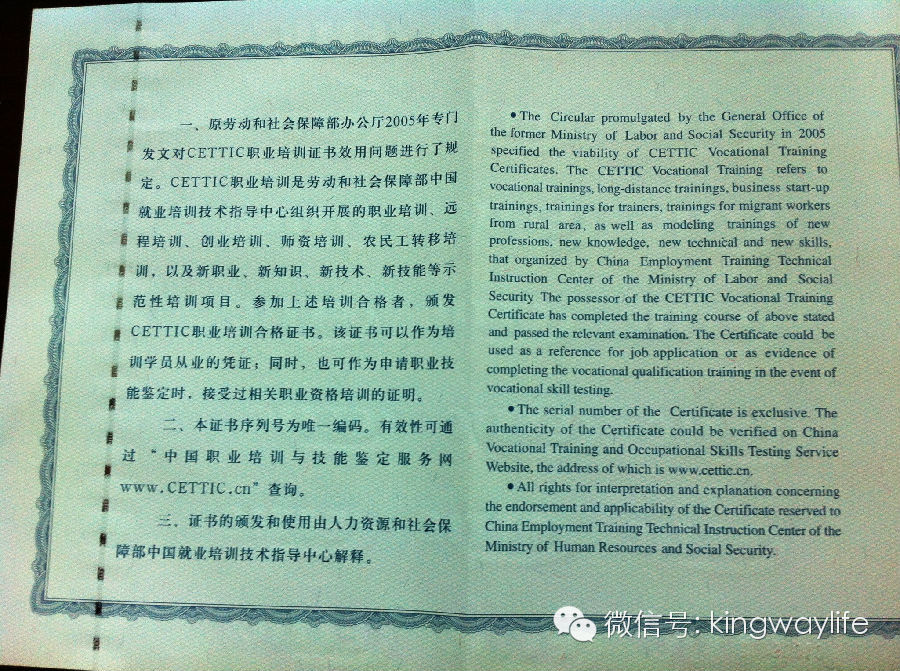 一、原劳动和社会保障部办公厅2005年专门
发文对CETTIC职业培训证书效用问题进行了规
定。CETTIC职业培训是劳动和社会保障部中国
就业培训技术指导中心组织开展的职业培训、远
程培训、创业培训、师资培训、农民工转移培
训，以及新职业、新知识、新技术、新技能等示
范性培训项目。参加上述培训合格者，颁发
CETTIC职业培训合格证书。该证书可以作为培
训学员从业的凭证；同时，也可作为申请职业技
能鉴定时，接受过相关职业资格培训的证明。
二、本证书序列号为唯一编码。有效性可通
过“中国职业培训与技能鉴定服务网
www.CETTIC.cn”查询。
三、证书的颁发和使用由人力资源和社会保
障部中国就业培训技术指导中心解释。
•The Circular promulgated by the General Office of
the former Ministry of Labor and Social Security in 2005
specified the viability of CETTIC Vocational Training
Certificates. The CETTIC Vocational Training refers to
vocational trainings, long-distance trainings, business start-up
trainings, trainings for trainers, trainings for migrant workers
from rural area, as well as modeling trainings of new
professions, new knowledge, new technical and new skills,
that organized by China Employment Training Technical
Instruction Center of the Ministry of Labor and Social
Security The possessor of the CETTIC Vocational Training
Certificate has completed the training course of above stated
and passed the relevant examination. The Certificate could be
used as a reference for job application or as evidence of
completing the vocational qualification training in the event of
vocational skill testing.
•The serial number of the Certificate is exclusive. The
authenticity of the Certificate could be verified on China
Vocational Training and Occupational Skills Testing Service
Website, the address of which is www.cettic.cn.
•All rights for interpretation and explanation concerning
the endorsement and applicability of the Certificate reserved to
China Employment Training Technical Instruction Center of the
Ministry of Human Resources and Social Security.
微信号: kingwaylife